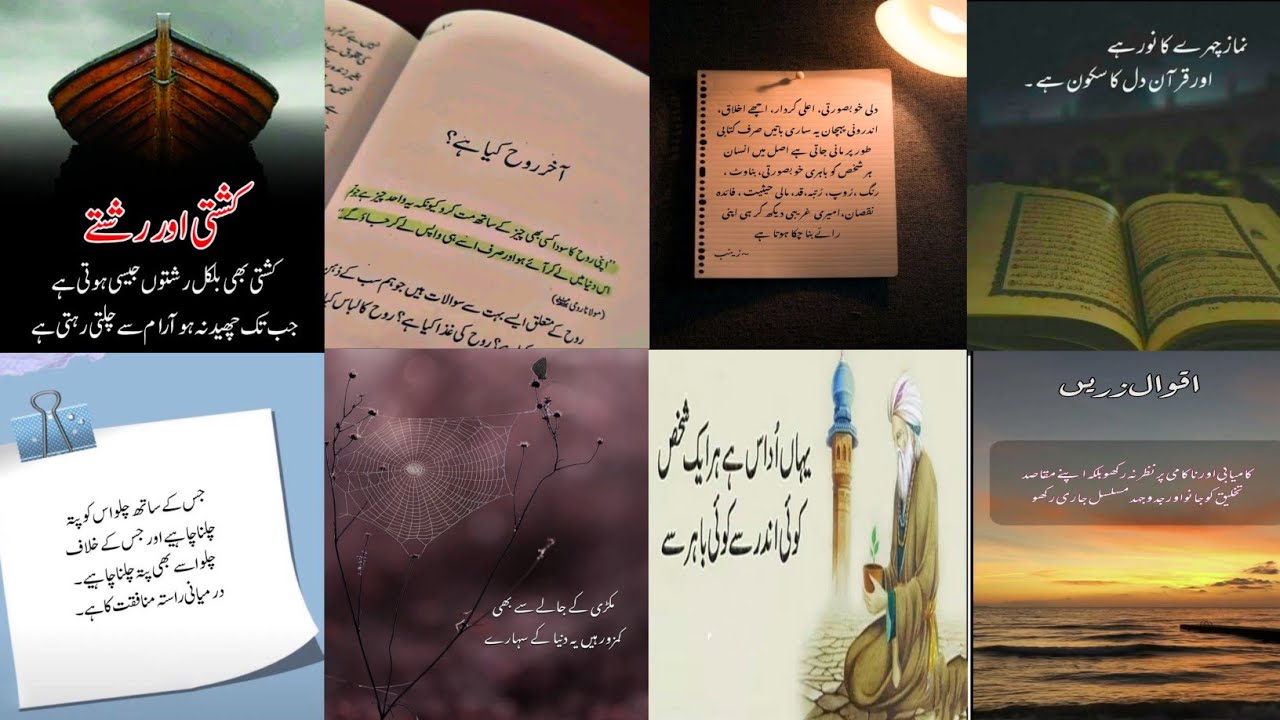 کشتی اور رشتے
کشتی بھی بلکل رشتوں جیسی ہوتی ہے
جب تک چھید نہ ہو آرام سے چلتی رہتی ہے
آخر روح کیا ہے؟
"اپنی روح کا سودا کسی بھی چیز کے ساتھ مت کرو کیونکہ یہ واحد چیز ہے جو تم
اس دنیا میں لے کر آئے ہو اور صرف اسے ہی واپس لے کر جاؤ گے"
(مولانا رومی)
روح کے متعلق ایسے بہت سے سوالات ہیں جو ہم سب کے ذہن
کیا ہے؟ روح کی غذا کیا ہے؟ روح کا لباس کیا
دلی خوبصورتی، اعلی کردار، اچھے اخلاق،
اندرونی پہچان یہ ساری باتیں صرف کتابی
طور پر مانی جاتی ہے اصل میں انسان
ہر شخص کو باہری خوبصورتی، بناوٹ،
رنگ، روپ، رتبہ، قد، مالی حیثیت، فائدہ
نقصان، امیری غریبی دیکھ کر ہی اپنی
رائے بنا چکا ہوتا ہے
~زینب
نماز چہرے کا نور ہے
اور قرآن دل کا سکون ہے۔
جس کے ساتھ چلو اس کو پتہ
چلنا چاہیے اور جس کے خلاف
چلو اسے بھی پتہ چلنا چاہیے۔
درمیانی راستہ منافقت کا ہے۔
مکڑی کے جالے سے بھی
کمزور ہیں یہ دنیا کے سہارے
یہاں اُداس ہے ہر ایک شخص
کوئی اندر سے کوئی باہر سے
اقوال زریں
کامیابی اور ناکامی پر نظر نہ رکھو بلکہ اپنے مقاصد
تخلیق کو جانو اور جدوجہد مسلسل جاری رکھو